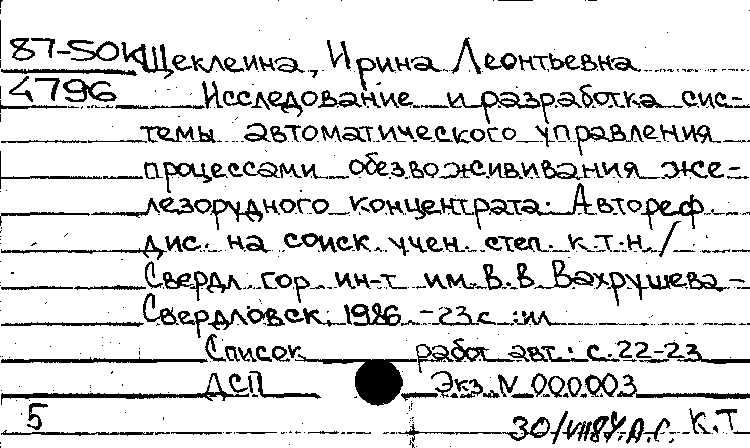 87-50К Щеклеина, Ирина Леонтьевна
4796 Исследование и разработка сис-
темы автоматического управления
процессами обезвожививания же-
лезорудного концентрата: Автореф.
дис. на соиск. учен. степ. к.т.н./
Свердл. гор. ин-т им. В.В. Вахрушева -
Свердловск. 1986. -23с :ил
Список работ авт.: с.22-23
ДСП Экз. N 000003
5 К.Т